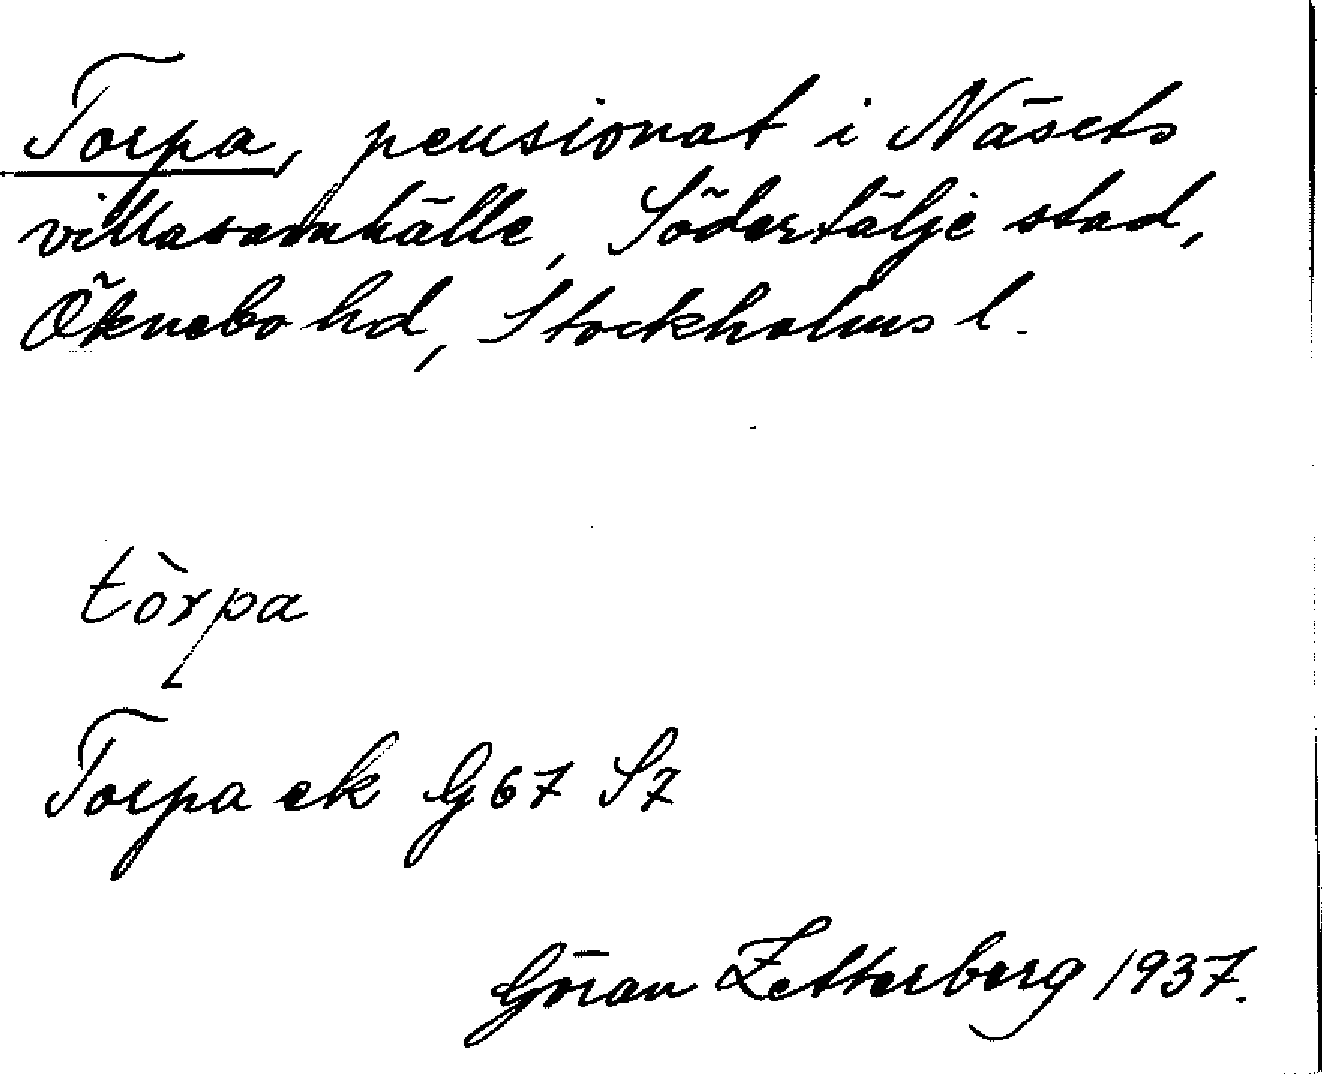 Torpa, pensionat i Näsets
villasamhälle, Södertälje stad,
Öknebo hd, Stockholms l.
tòrpa
Torpa ek G67 S7
Göran Zetterberg 1937.